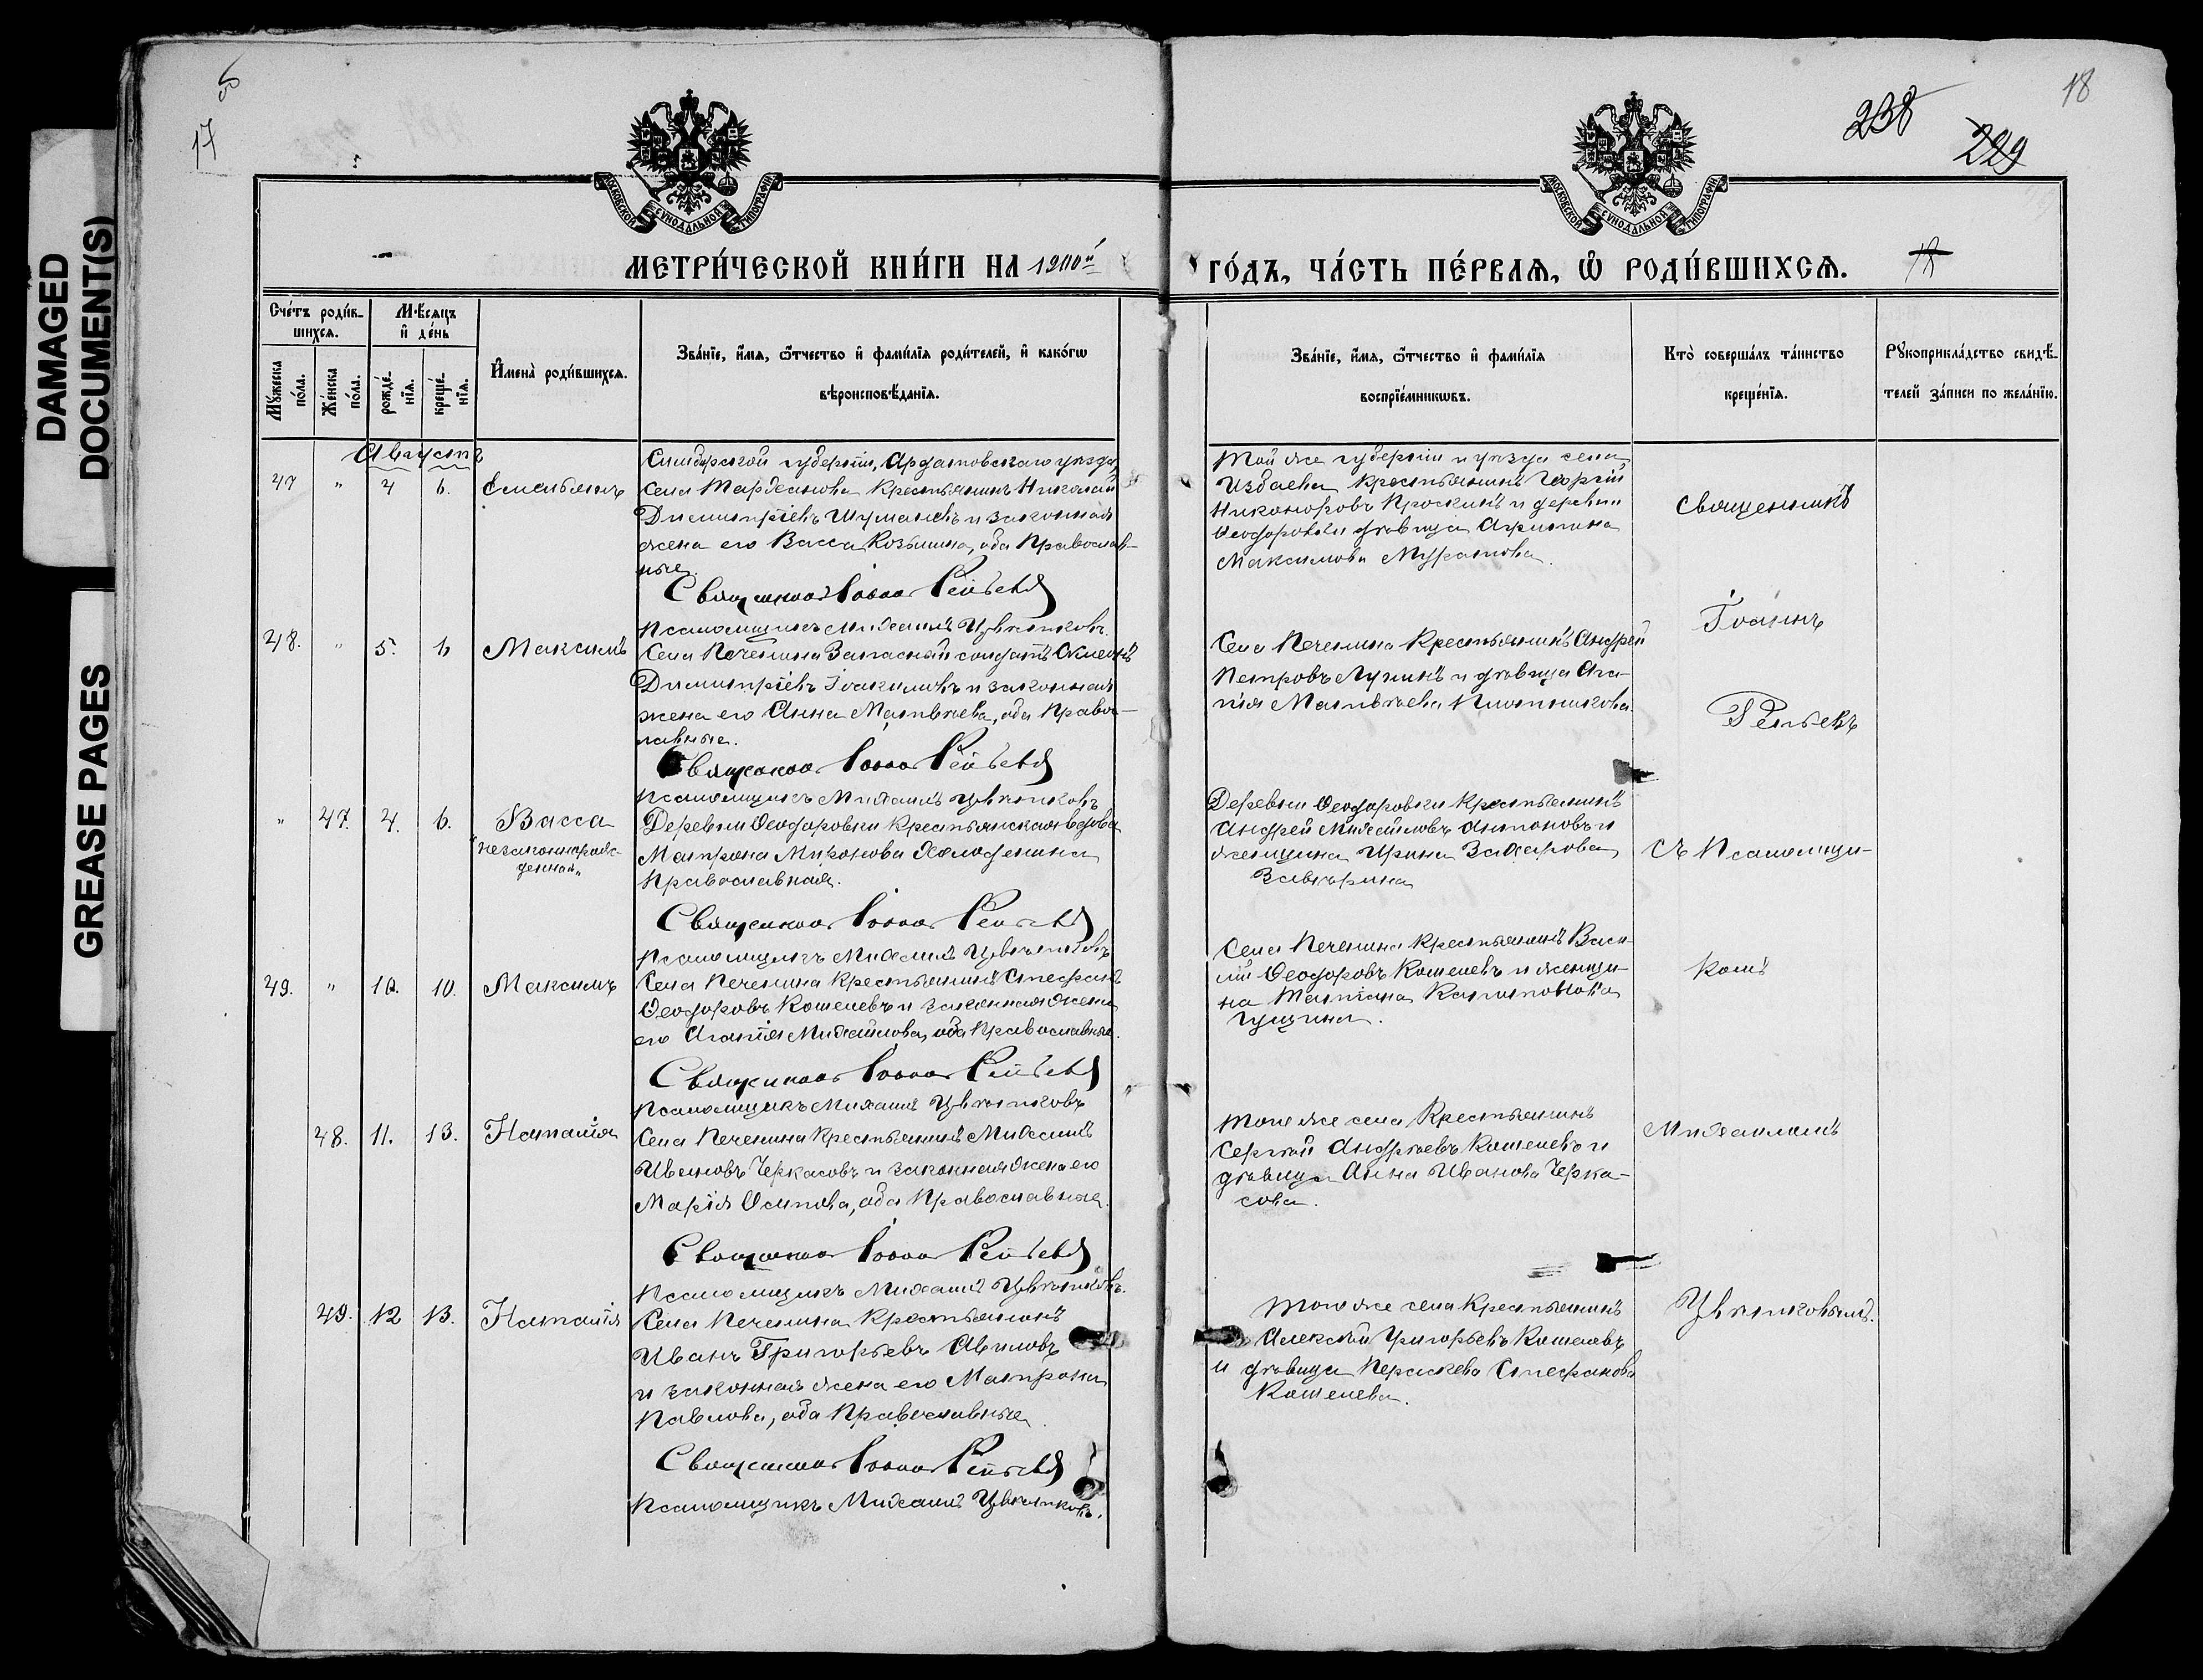 DAMAGED
DOCUMENT(S)
GREASE PAGES
17
18
238
229
МОСКОВСКОЙ СѴНОДАЛЬНОЙ ТИПОГРАФІИ
МОСКОВСКОЙ СѴНОДАЛЬНОЙ ТИПОГРАФІИ
МЕТРИ́ЧЕСКОЙ КНИ́ГИ НА 1900й
ГО́ДЪ, ЧА́СТЬ ПЕ́РВАѦ, Ѡ РОДИ́ВШИХСѦ.
Сче́тъ роди́в-
шихсѧ.
Мꙋ́жеска
по́ла.
Же́нска
по́ла.
Мѣ́сѧцъ
и҆ де́нь
рожде́-
нїѧ.
креще́-
нїѧ.
И҆мена̀ роди́вшихсѧ.
Зва́нїе, и҆́мѧ, ѻ҆́тчество и҆ фами́лїѧ роди́телей, и҆ како́гѡ
вѣроисповѣ́данїѧ.
Зва́нїе, и҆́мѧ, ѻ҆́тчество и҆ фами́лїѧ
воспрїе́мникѡвъ.
Кто̀ соверша́лъ та́инство
креще́нїѧ.
Рꙋкоприкла́дство свидѣ́-
телей за́писи по жела́нїю.
Августъ
47 " 4 6. Емельянъ
Симбирской губерніи, Ардатовскаго уѣзда,
села Тарханова крестьянинъ Николай
Димитріевъ Шумановъ и законная
жена его Васса Козьмина, оба православ-
ные.
Священникъ Іоаннъ Рельевъ
Псаломщикъ Михаилъ Цвѣтковъ.
Той же губерніи и уѣзда села
крестьянинъ Георгій
Никоноровъ и деревни
Ѳеодоровки дѣвица
Максимова Муратова.
Священникъ
Іоаннъ
Рельевъ
съ Псаломщи-
комъ
Михаиломъ
Цвѣтковымъ.
48. " 5. 6 Максимъ
Села Печенина запасный солдатъ
Димитріевъ Іоакимовъ и законная
жена его Анна Матвѣева, оба право-
славные.
Священникъ Іоаннъ Рельевъ
Псаломщикъ Михаилъ Цвѣтковъ
Села Печенина крестьянинъ Андрей
Петровъ Лунинъ и дѣвица Ага-
пія Матвѣева Плотникова.
" 47. 4. 6. Васса
"незаконнорож-
денная"
Деревни Ѳеодоровки крестьянская вдова
Матрона Миронова
православная.
Священникъ Іоаннъ Рельевъ
Псаломщикъ Михаилъ Цвѣтковъ
Деревни Ѳеодоровки крестьянинъ
Андрей Михайловъ Антоновъ и
женщина Ирина Захарова
49. " 10. 10. Максимъ
Села Печенина крестьянинъ Стефанъ
Ѳеодоровъ Кошелевъ и законная жена
его Агапія Михайлова, оба православные.
Священникъ Іоаннъ Рельевъ
Псаломщикъ Михаилъ Цвѣтковъ
Села Печенина крестьянинъ Васи-
лій Ѳеодоровъ Кошелевъ и женщи-
на Татіана Капитонова
Гущина.
48. 11. 13. Наталія
Села Печенина крестьянинъ Михаилъ
Ивановъ Черкасовъ и законная жена его
Марія Осипова, оба православные.
Священникъ Іоаннъ Рельевъ
Псаломщикъ Михаилъ Цвѣтковъ.
Того же села крестьянинъ
Сергѣй Андреевъ Кошелевъ и
дѣвица Анна Иванова Черка-
сова.
49. 12 13. Наталія
Села Печенина крестьянинъ
Иванъ Григорьевъ Авиловъ
и законная жена его Матрона
Павлова, оба православные.
Священникъ Іоаннъ Рельевъ
Псаломщикъ Михаилъ Цвѣтковъ.
Того же села крестьянинъ
Алексѣй Григорьевъ Кошелевъ
и дѣвица Параскева Стефанова
Кошелева.